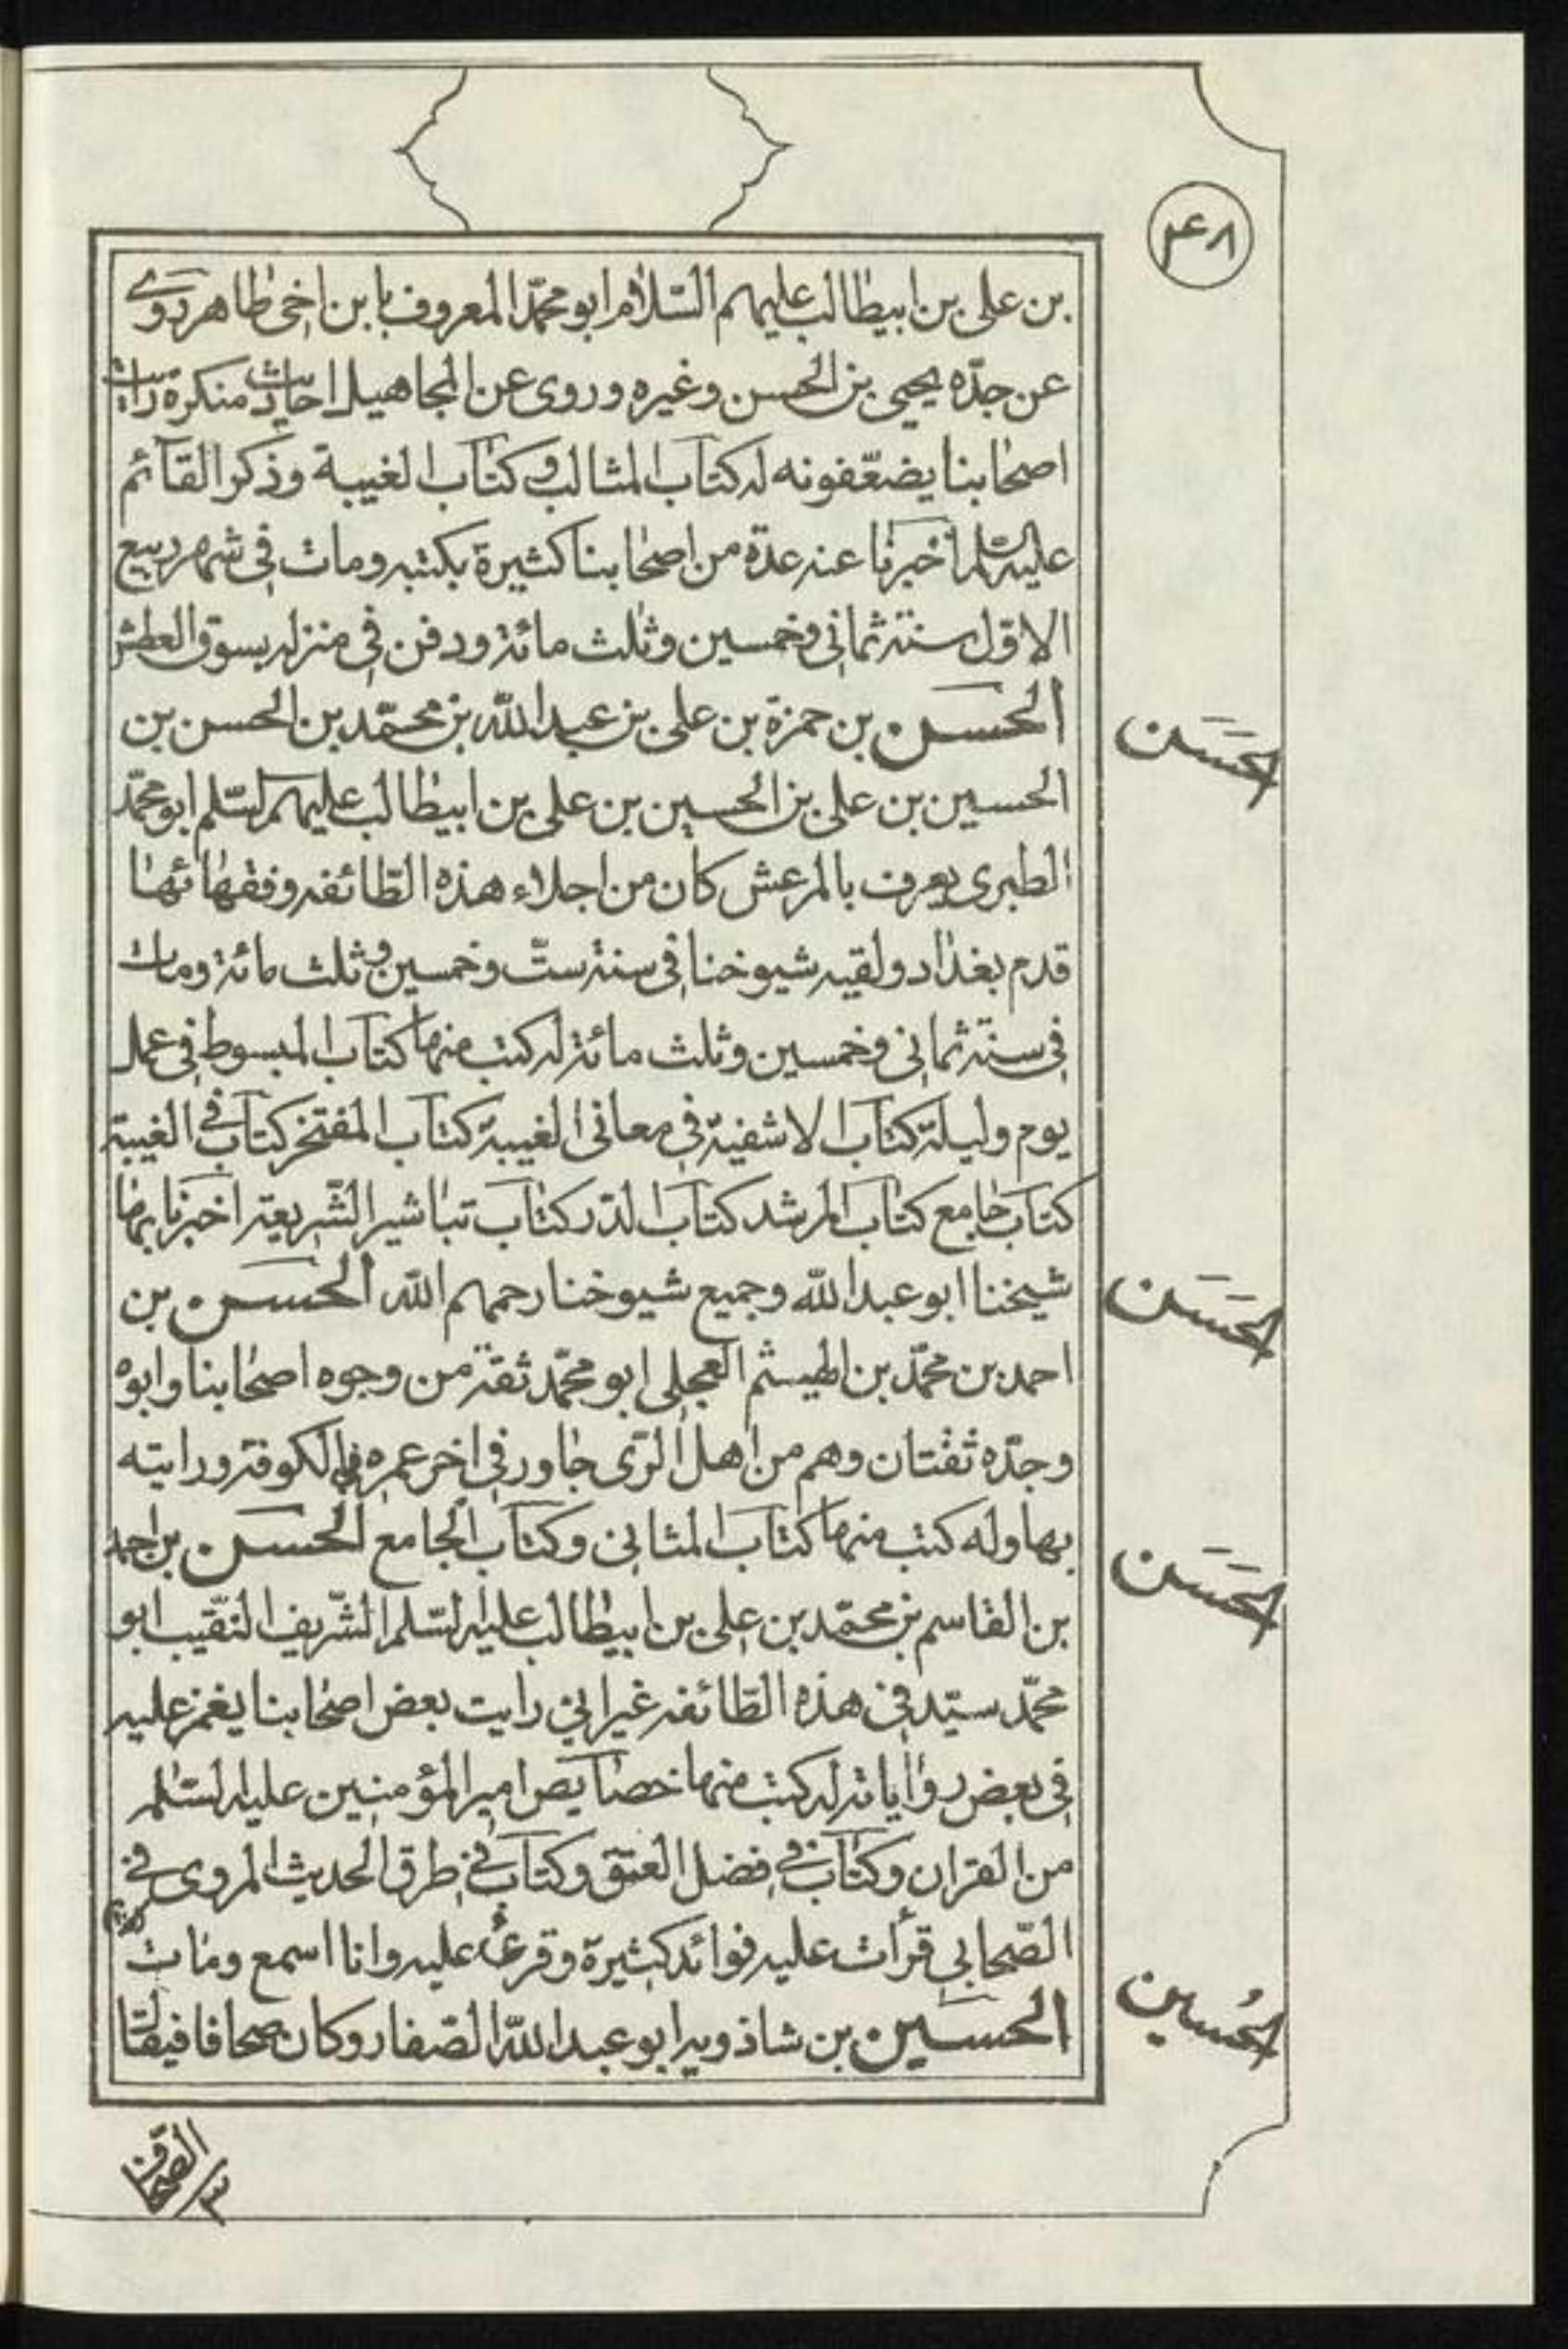 ۴۸
بن على بن ابيطالب عليهم السّلام ابو محمّد المعروف بابن اخى طاهر روى
عن جدّه يحيى بن الحسن وغيره وروى عن المجاهيل احاديث منكرة رايت
اصحابنا يضعّفونه له كتاب المثالب و كتاب الغيبة وذكر القآئم
عليه السّلم اخبرنا عنه عدّة من اصحابنا كثيرة بكتبه ومات فى شهر ربيع
الاوّل سنة ثمانى وخمسين وثلث مائة ودفن فى منزله بسوق العطش
الحسن بن حمزة بن على بن عبد اللّه بن محمّد بن الحسن بن
الحسين بن على بن الحسين بن على بن ابيطالب عليهم السّلم ابو محمّد
الطبرى يعرف بالمرعش كان من اجلاء هذه الطّائفه وفقهائها
قدم بغداد ولقيه شيوخنا فى سنة ستّ وخمسين وثلث مائة ومات
فى سنة ثمانى وخمسين وثلث مائة له كتب منها كتاب المبسوط فى عمل
يوم وليلة كتاب الاشفية فى معانى الغيبة كتاب المفتخر كتاب فى الغيبة
كتاب جامع كتاب المرشد كتاب الدّر كتاب تباشير الشّريعة اخبرنا بها
شيخنا ابو عبد اللّه وجميع شيوخنا رحمهم اللّه الحسن بن
احمد بن محمّد بن الهيثم العجلى ابو محمّد ثقة من وجوه اصحابنا وابوه
وجدّه ثقتان وهم من اهل الرّى جاور فى اخر عمره فى الكوفة ورايته
بها وله كتب منها كتاب المثانى وكتاب الجامع الحسن بن احمد
بن القاسم بن محمّد بن على بن ابيطالب عليه السّلم الشّريف النّقيب ابو
محمّد سيّد فى هذه الطّائفه غير انى رايت بعض اصحابنا يغمز عليه
فى بعض رواياته له كتب منها خصآيص امير المؤمنين عليه السّلم
من القران وكتاب فى فضل العتق وكتاب فى طرق الحديث المروى فى
الصّحابى قرأت عليه فوائد كثيرة وقرئ عليه وانا اسمع ومات
الحسين بن شاذويه ابو عبد اللّه الصّفار وكان صحافا فيقال
الحَسَن
الحَسَن
الحَسَن
الحُسين
الصحاف
۳